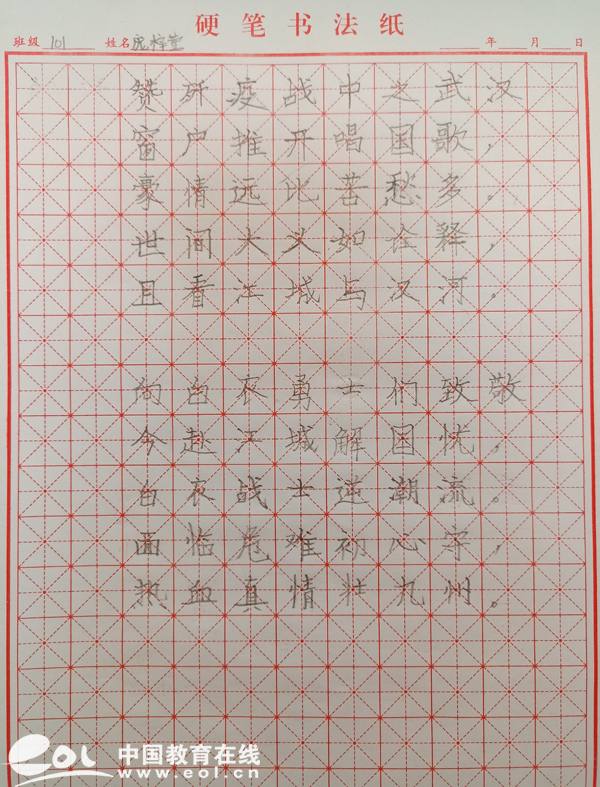 硬笔书法纸
班级 101 姓名 庞梓萱 年 月 日
赞歼疫战中之武汉
窗户推开唱国歌,
豪情远比苦愁多。
世间大义如诠释,
且看江城与汉河。
向白衣勇士们致敬
今赴江城解国忧,
白衣战士逆潮流。
面临危难初心守,
热血真情壮九州。
eol 中国教育在线
www.eol.cn